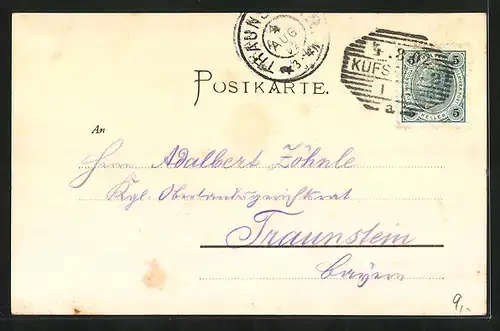 TRAUNSTEIN
4 AUG
4.8.02
KUFSTEIN
1
a
5 5
HELLER
POSTKARTE.
An
Herrn Adalbert Zöhnle
Kgl. Oberlandsgerichtsrat
Traunstein
Bayern
9,-